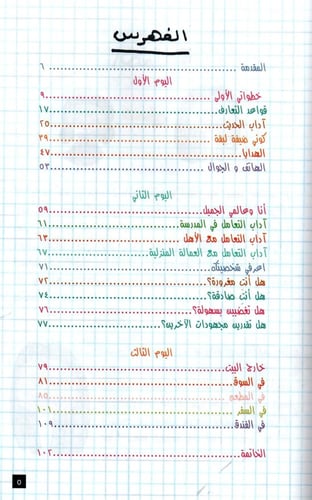 الفهرس
المقدمة ............ ٦
اليوم الأول
خطواتي الأولى ............ ٩
قواعد التعارف ............ ١٧
آداب الحديث ............ ٢٥
كوني ضيفة لبقة ............ ٣٩
الهدايا ............ ٤٧
الهاتف و الجوال ............ ٥٣
اليوم الثاني
أنا وعالمي الجميل ............ ٥٩
آداب التعامل في المدرسة ............ ٦١
آداب التعامل مع الأهل ............ ٦٣
آداب التعامل مع العمالة المنزلية ............ ٦٧
اعرفي شخصيتك ............ ٧١
هل أنت مغرورة؟ ............ ٧٢
هل أنت صادقة؟ ............ ٧٤
هل تغضبين بسهولة؟ ............ ٧٦
هل تقدرين مجهودات الآخرين؟ ............ ٧٧
اليوم الثالث
خارج البيت ............ ٧٩
في السوق ............ ٨١
في المطعم ............ ٨٥
في السفر ............ ١٠١
في الفندق ............ ١٠٩
الخاتمة ............ ١٠٢
٥